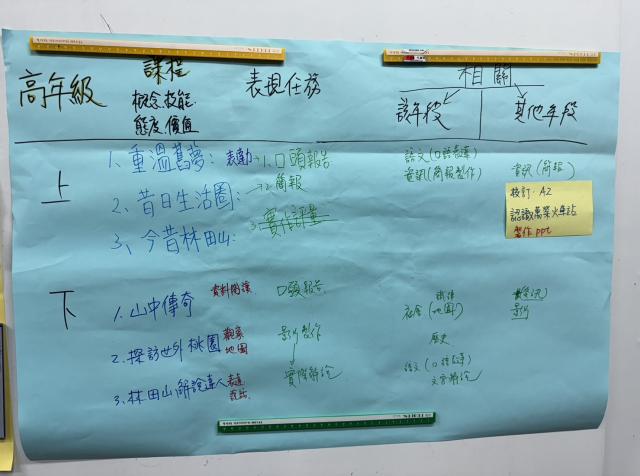 高年級
課程
概念.技能.
態度.價值
表現任務
相關
該年段
其他年段
上
1. 重溫舊夢:
表動
1. 口頭報告
語文(口語表達)
資訊(簡報製作)
資訊(簡報)
2. 昔日生活圈:
2. 簡報
3. 實作評量
3、今昔林田山:
校訂: A2
認識萬榮火車站
製作ppt
下
1. 山中傳奇
資料閱讀
口頭報告
社會(地圖)
2. 探訪世外桃園
觀察
地圖
影片製作
歷史
影片
3. 林田山解說達人
表達
實際解說
語文(口語表達)